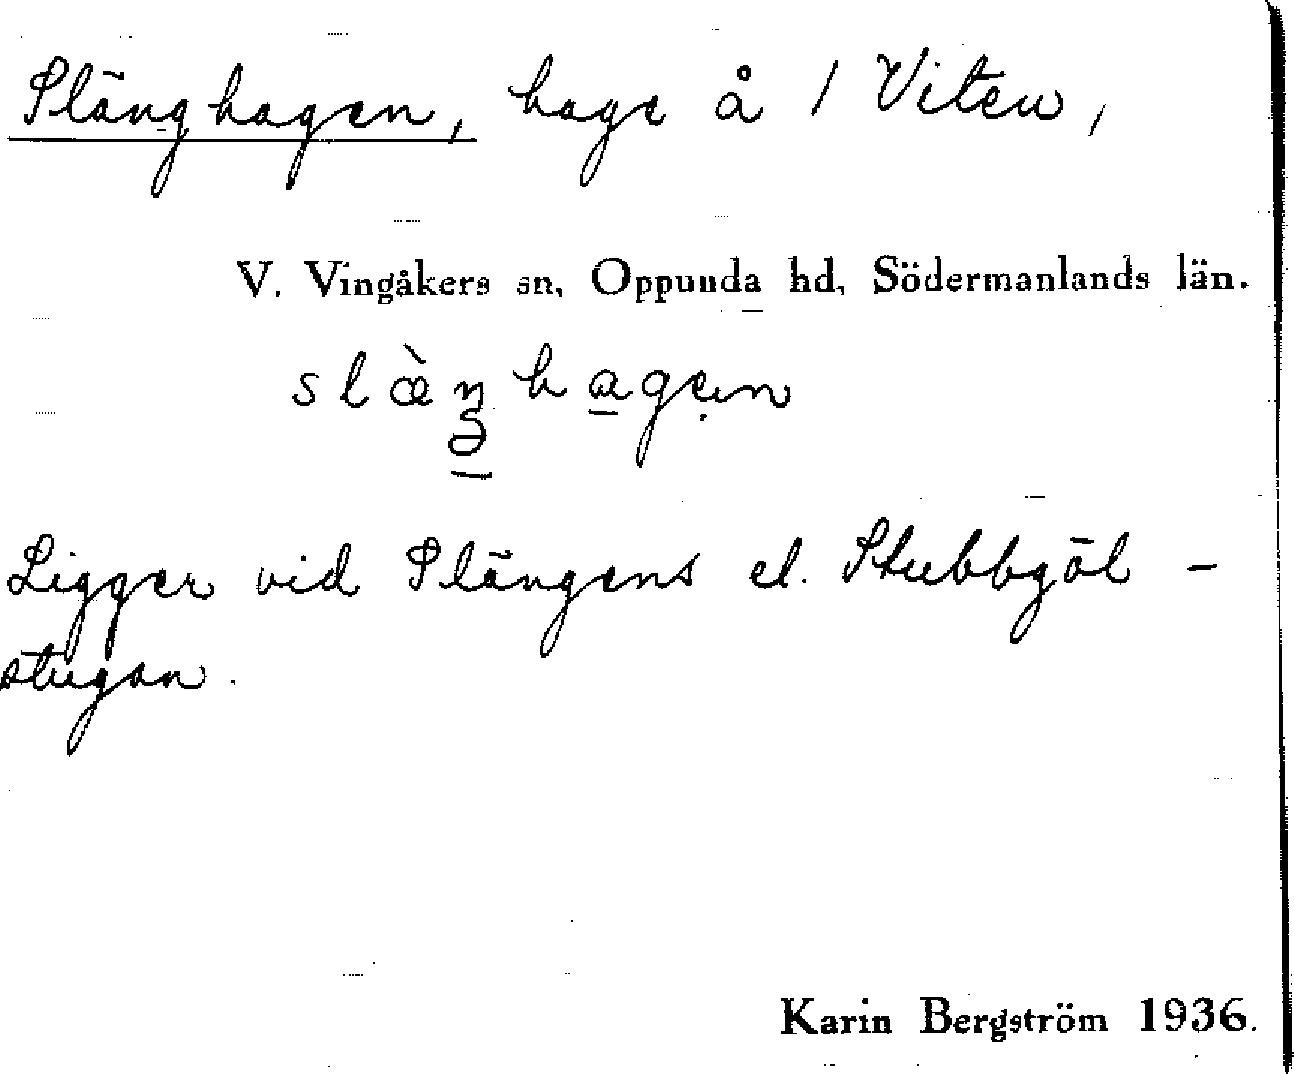 Slänghagen, hage å 1 Viten,
V. Vingåkers sn, Oppunda hd, Södermanlands län.
slæ̀ŋhagen
Ligger vid Slängens el. Stubbgöl-
stugan.
Karin Bergström 1936.